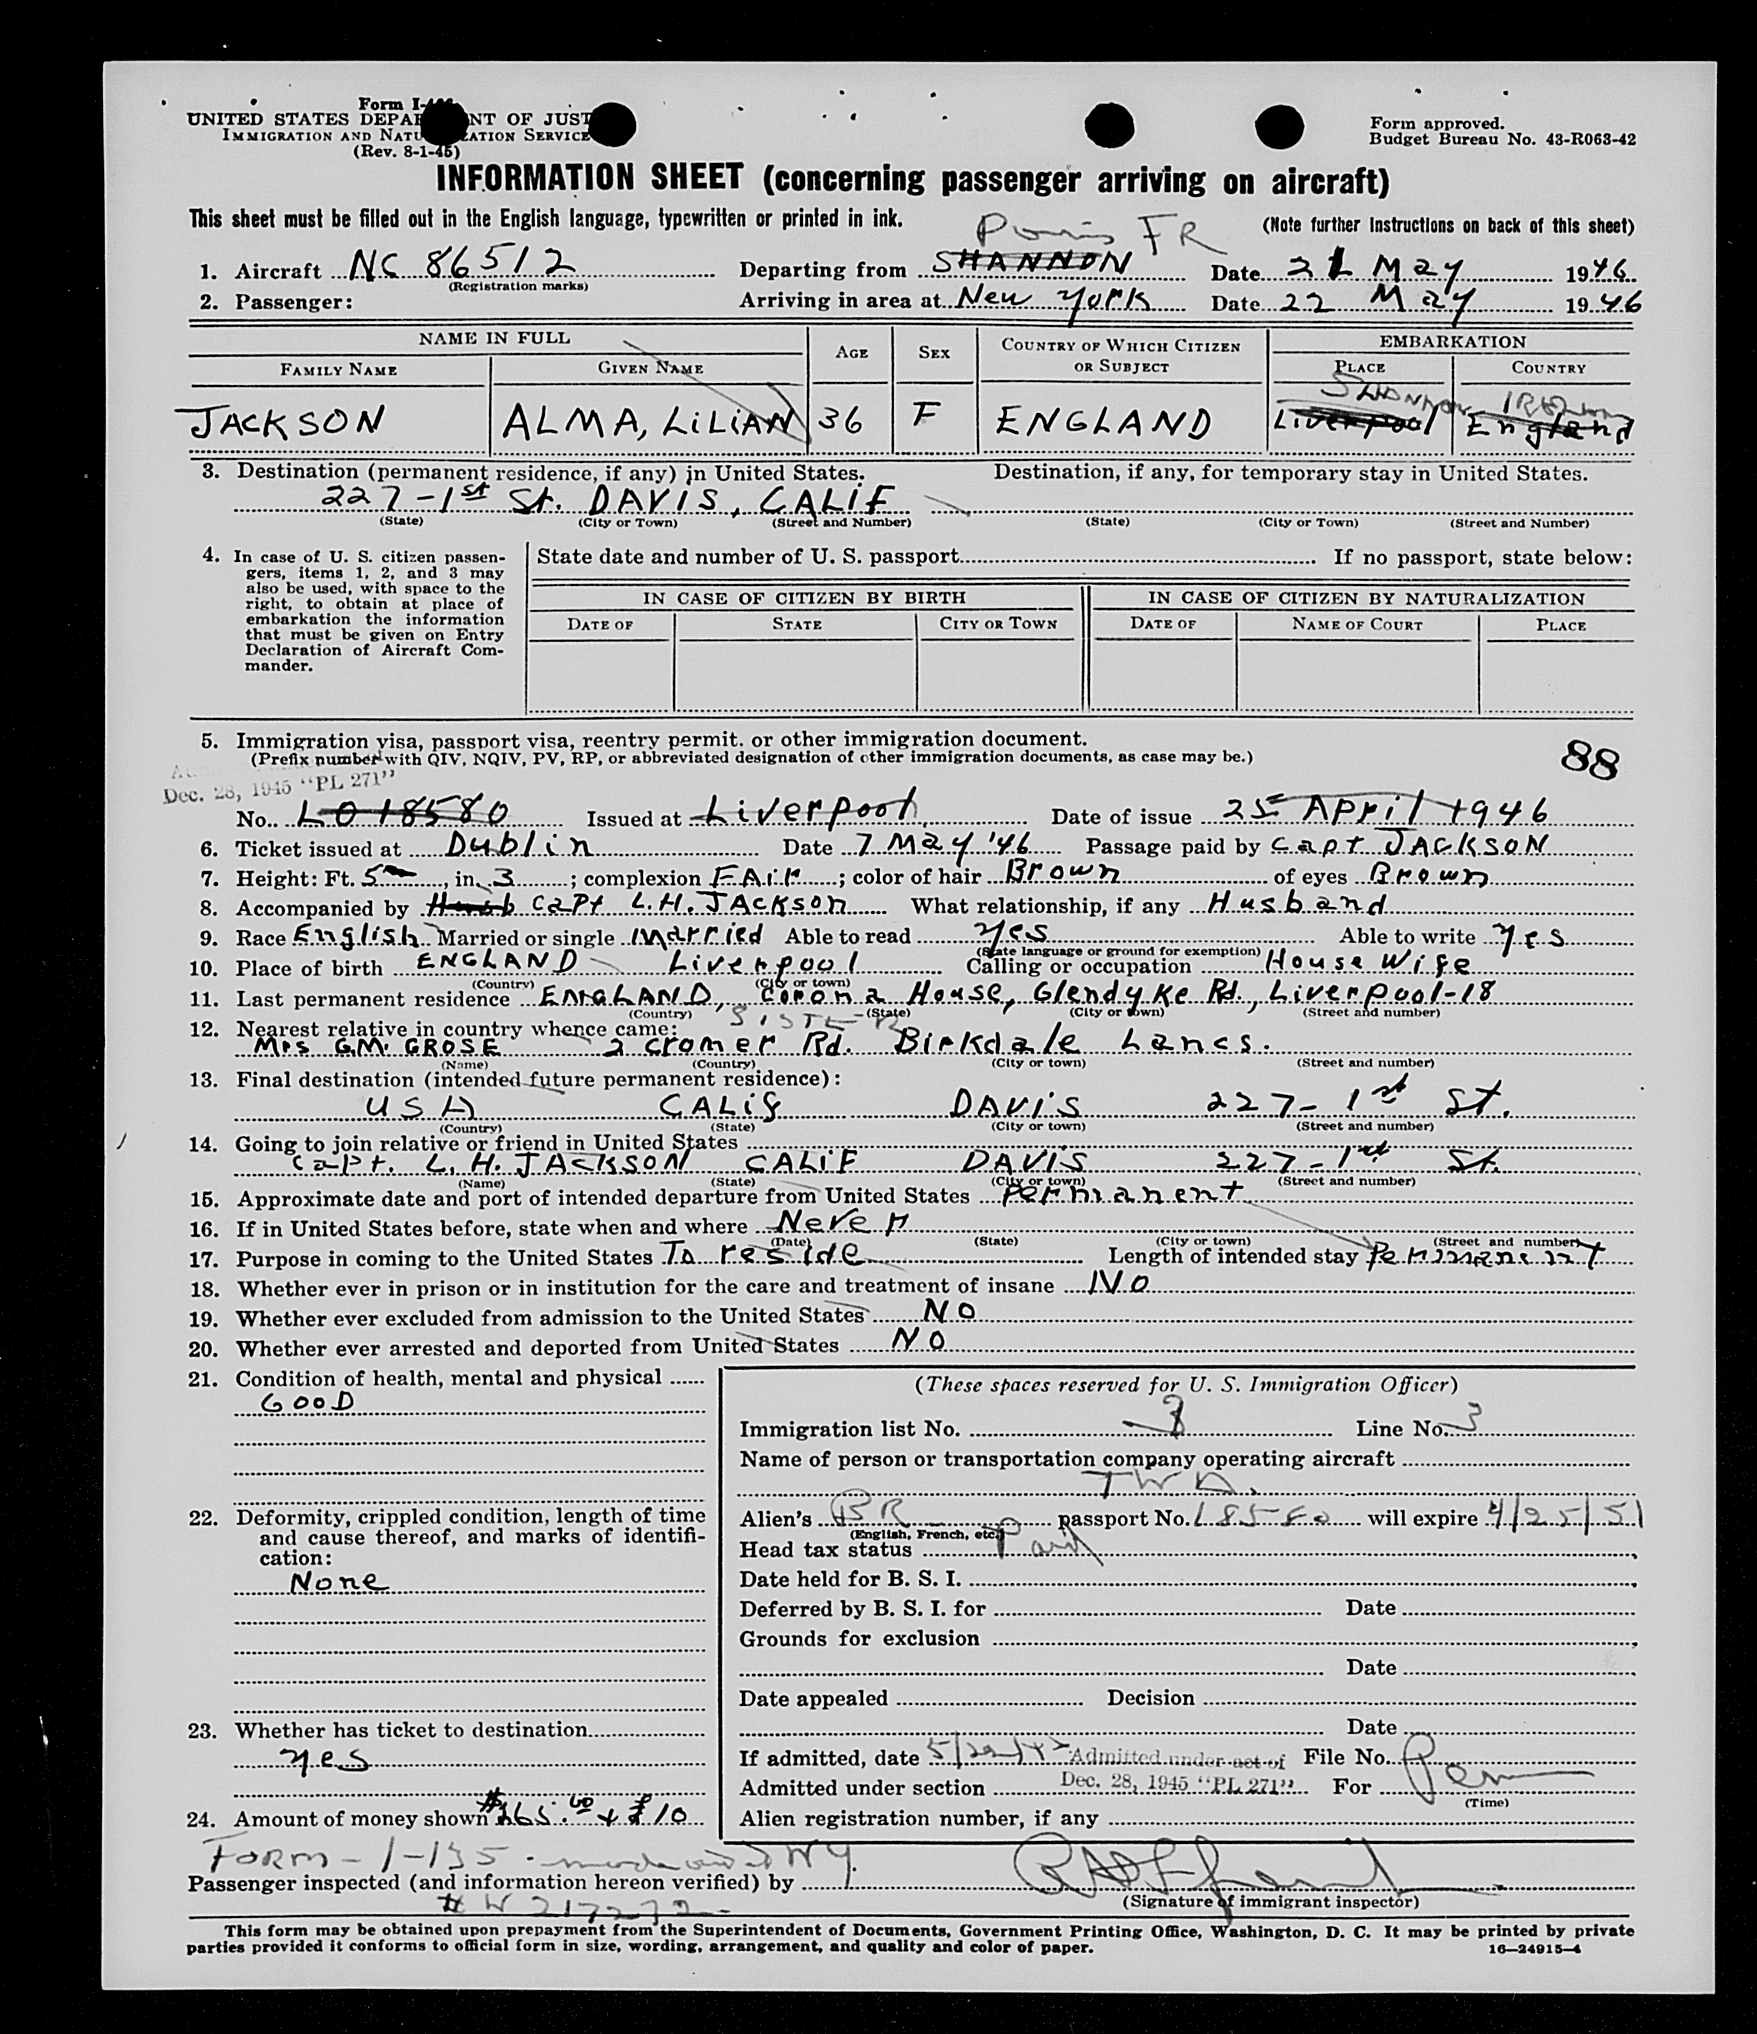 Form I-
UNITED STATES DEPA NT OF JUST
IMMIGRATION AND NATU ATION SERVICE
(Rev. 8-1-45)
Form approved.
Budget Bureau No. 43-R063-42
INFORMATION SHEET (concerning passenger arriving on aircraft)
This sheet must be filled out in the English language, typewritten or printed in ink.
(Note further instructions on back of this sheet)
Paris FR
1. Aircraft NC 86512 Departing from SHANNON Date 21 May 1946
(Registration marks)
2. Passenger: Arriving in area at New York Date 22 May 1946
NAME IN FULL AGE SEX COUNTRY OF WHICH CITIZEN OR SUBJECT EMBARKATION
FAMILY NAME GIVEN NAME PLACE COUNTRY
SHANNON IRELAND
JACKSON ALMA, LILIAN 36 F ENGLAND Liverpool England
3. Destination (permanent residence, if any) in United States. Destination, if any, for temporary stay in United States.
227-1st St. DAVIS, CALIF
(State) (City or Town) (Street and Number) (State) (City or Town) (Street and Number)
4. In case of U. S. citizen passen-
gers, items 1, 2, and 3 may
also be used, with space to the
right, to obtain at place of
embarkation the information
that must be given on Entry
Declaration of Aircraft Com-
mander.
State date and number of U. S. passport If no passport, state below:
IN CASE OF CITIZEN BY BIRTH IN CASE OF CITIZEN BY NATURALIZATION
DATE OF STATE CITY OR TOWN DATE OF NAME OF COURT PLACE
5. Immigration visa, passport visa, reentry permit, or other immigration document.
(Prefix number with QIV, NQIV, PV, RP, or abbreviated designation of other immigration documents, as case may be.)
88
Dec. 28, 1945 "PL 271"
No. L018580 Issued at Liverpool Date of issue 25 April 1946
6. Ticket issued at Dublin Date 7 May '46 Passage paid by Capt JACKSON
7. Height: Ft. 5, in. 3; complexion FAIR; color of hair Brown of eyes Brown
8. Accompanied by Capt L.H. JACKSON What relationship, if any Husband
9. Race English Married or single Married Able to read yes Able to write yes
(State language or ground for exemption)
10. Place of birth ENGLAND Liverpool Calling or occupation House Wife
(Country) (City or town)
11. Last permanent residence ENGLAND, Corona House, Glendyke Rd., Liverpool-18
(Country) (State) (City or town) (Street and number)
12. Nearest relative in country whence came: SISTER
Mrs G.M. GROSE 2 Cromer Rd. Birkdale Lancs.
(Name) (Country) (City or town) (Street and number)
13. Final destination (intended future permanent residence):
USA CALIF DAVIS 227-1st St.
(Country) (State) (City or town) (Street and number)
14. Going to join relative or friend in United States
Capt. L. H. JACKSON CALIF DAVIS 227-1st St.
(Name) (State) (City or town) (Street and number)
15. Approximate date and port of intended departure from United States Permanent
16. If in United States before, state when and where Never
(Date) (State) (City or town) (Street and number)
17. Purpose in coming to the United States To reside Length of intended stay Permanent
18. Whether ever in prison or in institution for the care and treatment of insane NO
19. Whether ever excluded from admission to the United States NO
20. Whether ever arrested and deported from United States NO
21. Condition of health, mental and physical
GOOD
22. Deformity, crippled condition, length of time
and cause thereof, and marks of identifi-
cation:
None
23. Whether has ticket to destination
yes
24. Amount of money shown $265.00 + £10
(These spaces reserved for U. S. Immigration Officer)
Immigration list No. 3 Line No. 3
Name of person or transportation company operating aircraft
TWA.
Alien's BR passport No. L 8580 will expire 4/25/51
(English, French, etc.)
Head tax status Paid
Date held for B. S. I.
Deferred by B. S. I. for Date
Grounds for exclusion
Date
Date appealed Decision
Date
If admitted, date Admitted under act of File No.
Admitted under section Dec. 28, 1945 "PL 271" For Perm
(Time)
Alien registration number, if any
Form-I-135 NY.
Passenger inspected (and information hereon verified) by
(Signature of immigrant inspector)
# W 217272
This form may be obtained upon prepayment from the Superintendent of Documents, Government Printing Office, Washington, D. C. It may be printed by private
parties provided it conforms to official form in size, wording, arrangement, and quality and color of paper.
16—24915-4